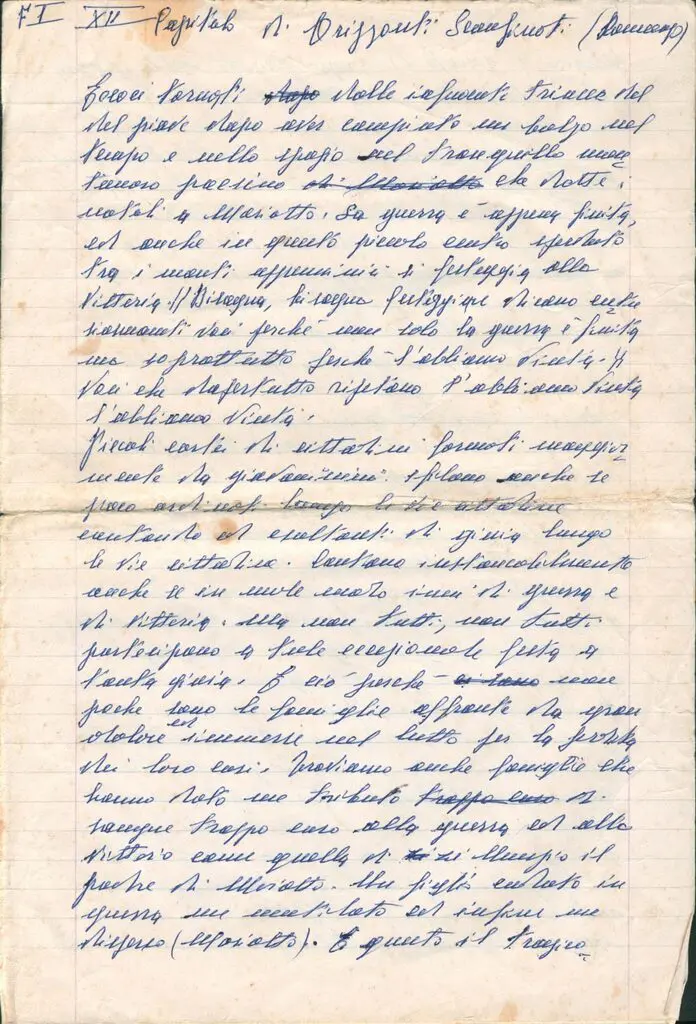 F I XII Capitolo di Orizzonti Sconfinati (Romanzo)
Eccoci tornati dopo dalle infuocate trincee del
del piave dopo aver compiuto un balzo nel
tempo e nello spazio nel tranquillo mon
tanaro paesino di Mariotto che dette i
natali a Mariotto. La guerra è appena finita,
ed anche in questo piccolo centro sperduto
tra i monti appennini si festeggia alla
vittoria. // Bisogna, bisogna festeggiare dicono
voci perché non solo la guerra è finita
ma soprattutto perché l'abbiamo vinta. //
Voci che dapertutto ripetono l'abbiamo vinta
l'abbiamo vinta.
Piccoli cortei di cittadini formati maggior
mente da giovanissimi sfilano anche se
poco ordinati lungo le vie cittadine
cantando ed esultanti di gioia lungo
le vie cittadine. Cantano instancabilmente
anche se in malo modo inni di guerra e
di vittoria. Ma non tutti, non tutti
partecipano a tale eccezionale festa a
tanta gioia. E ciò perché ci sono non
poche sono le famiglie affrante da gran
dolore ed immerse nel lutto per la perdita
dei loro cari. Troviamo anche famiglie che
hanno dato un tributo troppo caro di
sangue troppo caro alla guerra ed alla
vittoria come quella di zi Nunzio il
padre di Mariotto. Un figlio caduto in
guerra un mutilato ed infine un
disperso (Mariotto). E questo il tragico